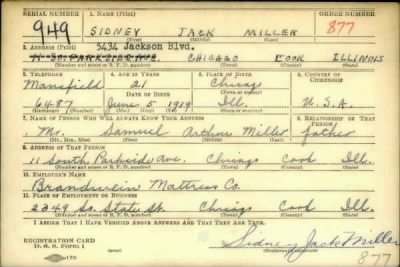 SERIAL NUMBER 1. NAME (Print) ORDER NUMBER
949 SIDNEY JACK MILLER 877
(First) (Middle) (Last)
5434 Jackson Blvd.
2. ADDRESS (Print)
11 So. PARKSIDE AVE. CHICAGO COOK ILLINOIS
(Number and street or R. F. D. number) (Town) (County) (State)
3. TELEPHONE 4. AGE IN YEARS 5. PLACE OF BIRTH 6. COUNTRY OF CITIZENSHIP
Mansfield 21 Chicago
DATE OF BIRTH
6487 June 5 1919 Ill. U.S.A.
(Mo.) (Day) (Yr.)
7. NAME OF PERSON WHO WILL ALWAYS KNOW YOUR ADDRESS 8. RELATIONSHIP OF THAT PERSON
Mr. Samuel Arthur Miller father
(Mr., Mrs., Miss) (First) (Middle) (Last)
9. ADDRESS OF THAT PERSON
11 South Parkside Ave. Chicago Cook Ill.
(Number and street or R. F. D. number) (Town) (County) (State)
10. EMPLOYER'S NAME
Brandwein Mattress Co.
11. PLACE OF EMPLOYMENT OR BUSINESS
2349 So. State St. Chicago Cook Ill.
(Number and street or R. F. D. number) (Town) (County) (State)
I AFFIRM THAT I HAVE VERIFIED ABOVE ANSWERS AND THAT THEY ARE TRUE.
REGISTRATION CARD
D. S. S. FORM 1
Sidney Jack Miller
877